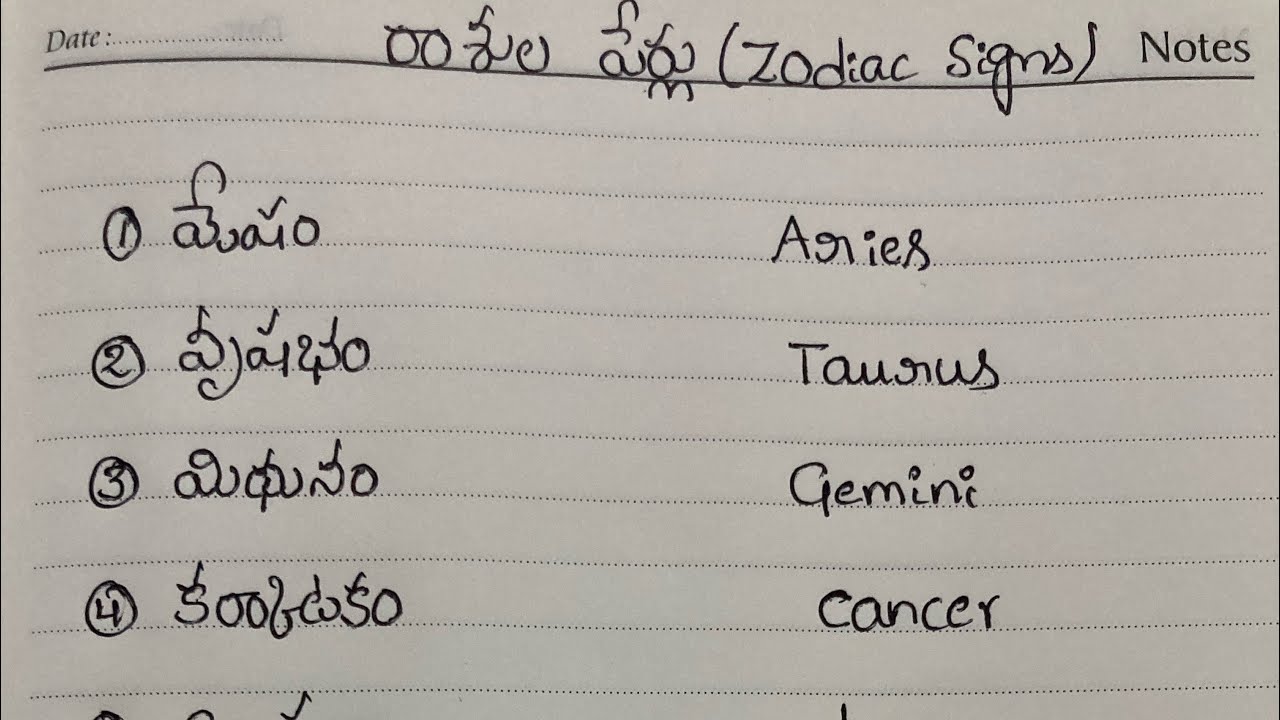 Date: రాశుల పేర్లు (Zodiac Signs) Notes
① మేషం Aries
② వృషభం Taurus
③ మిథునం Gemini
④ కర్కాటకం Cancer